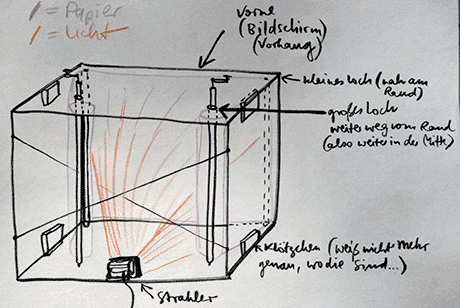 / = Papier
/ = Licht
Vorne
(Bildschirm)
(Vorhang)
kleines Loch (nah am
Rand)
großes Loch
weiter weg vom Rand
(also weiter in der Mitte)
Klötzchen (weiß nicht mehr
genau, wo die sind...)
Strahler